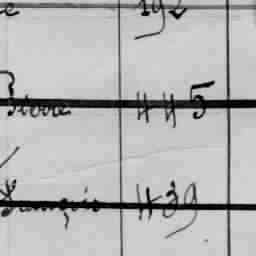 e 192
Pierre 445
François 439